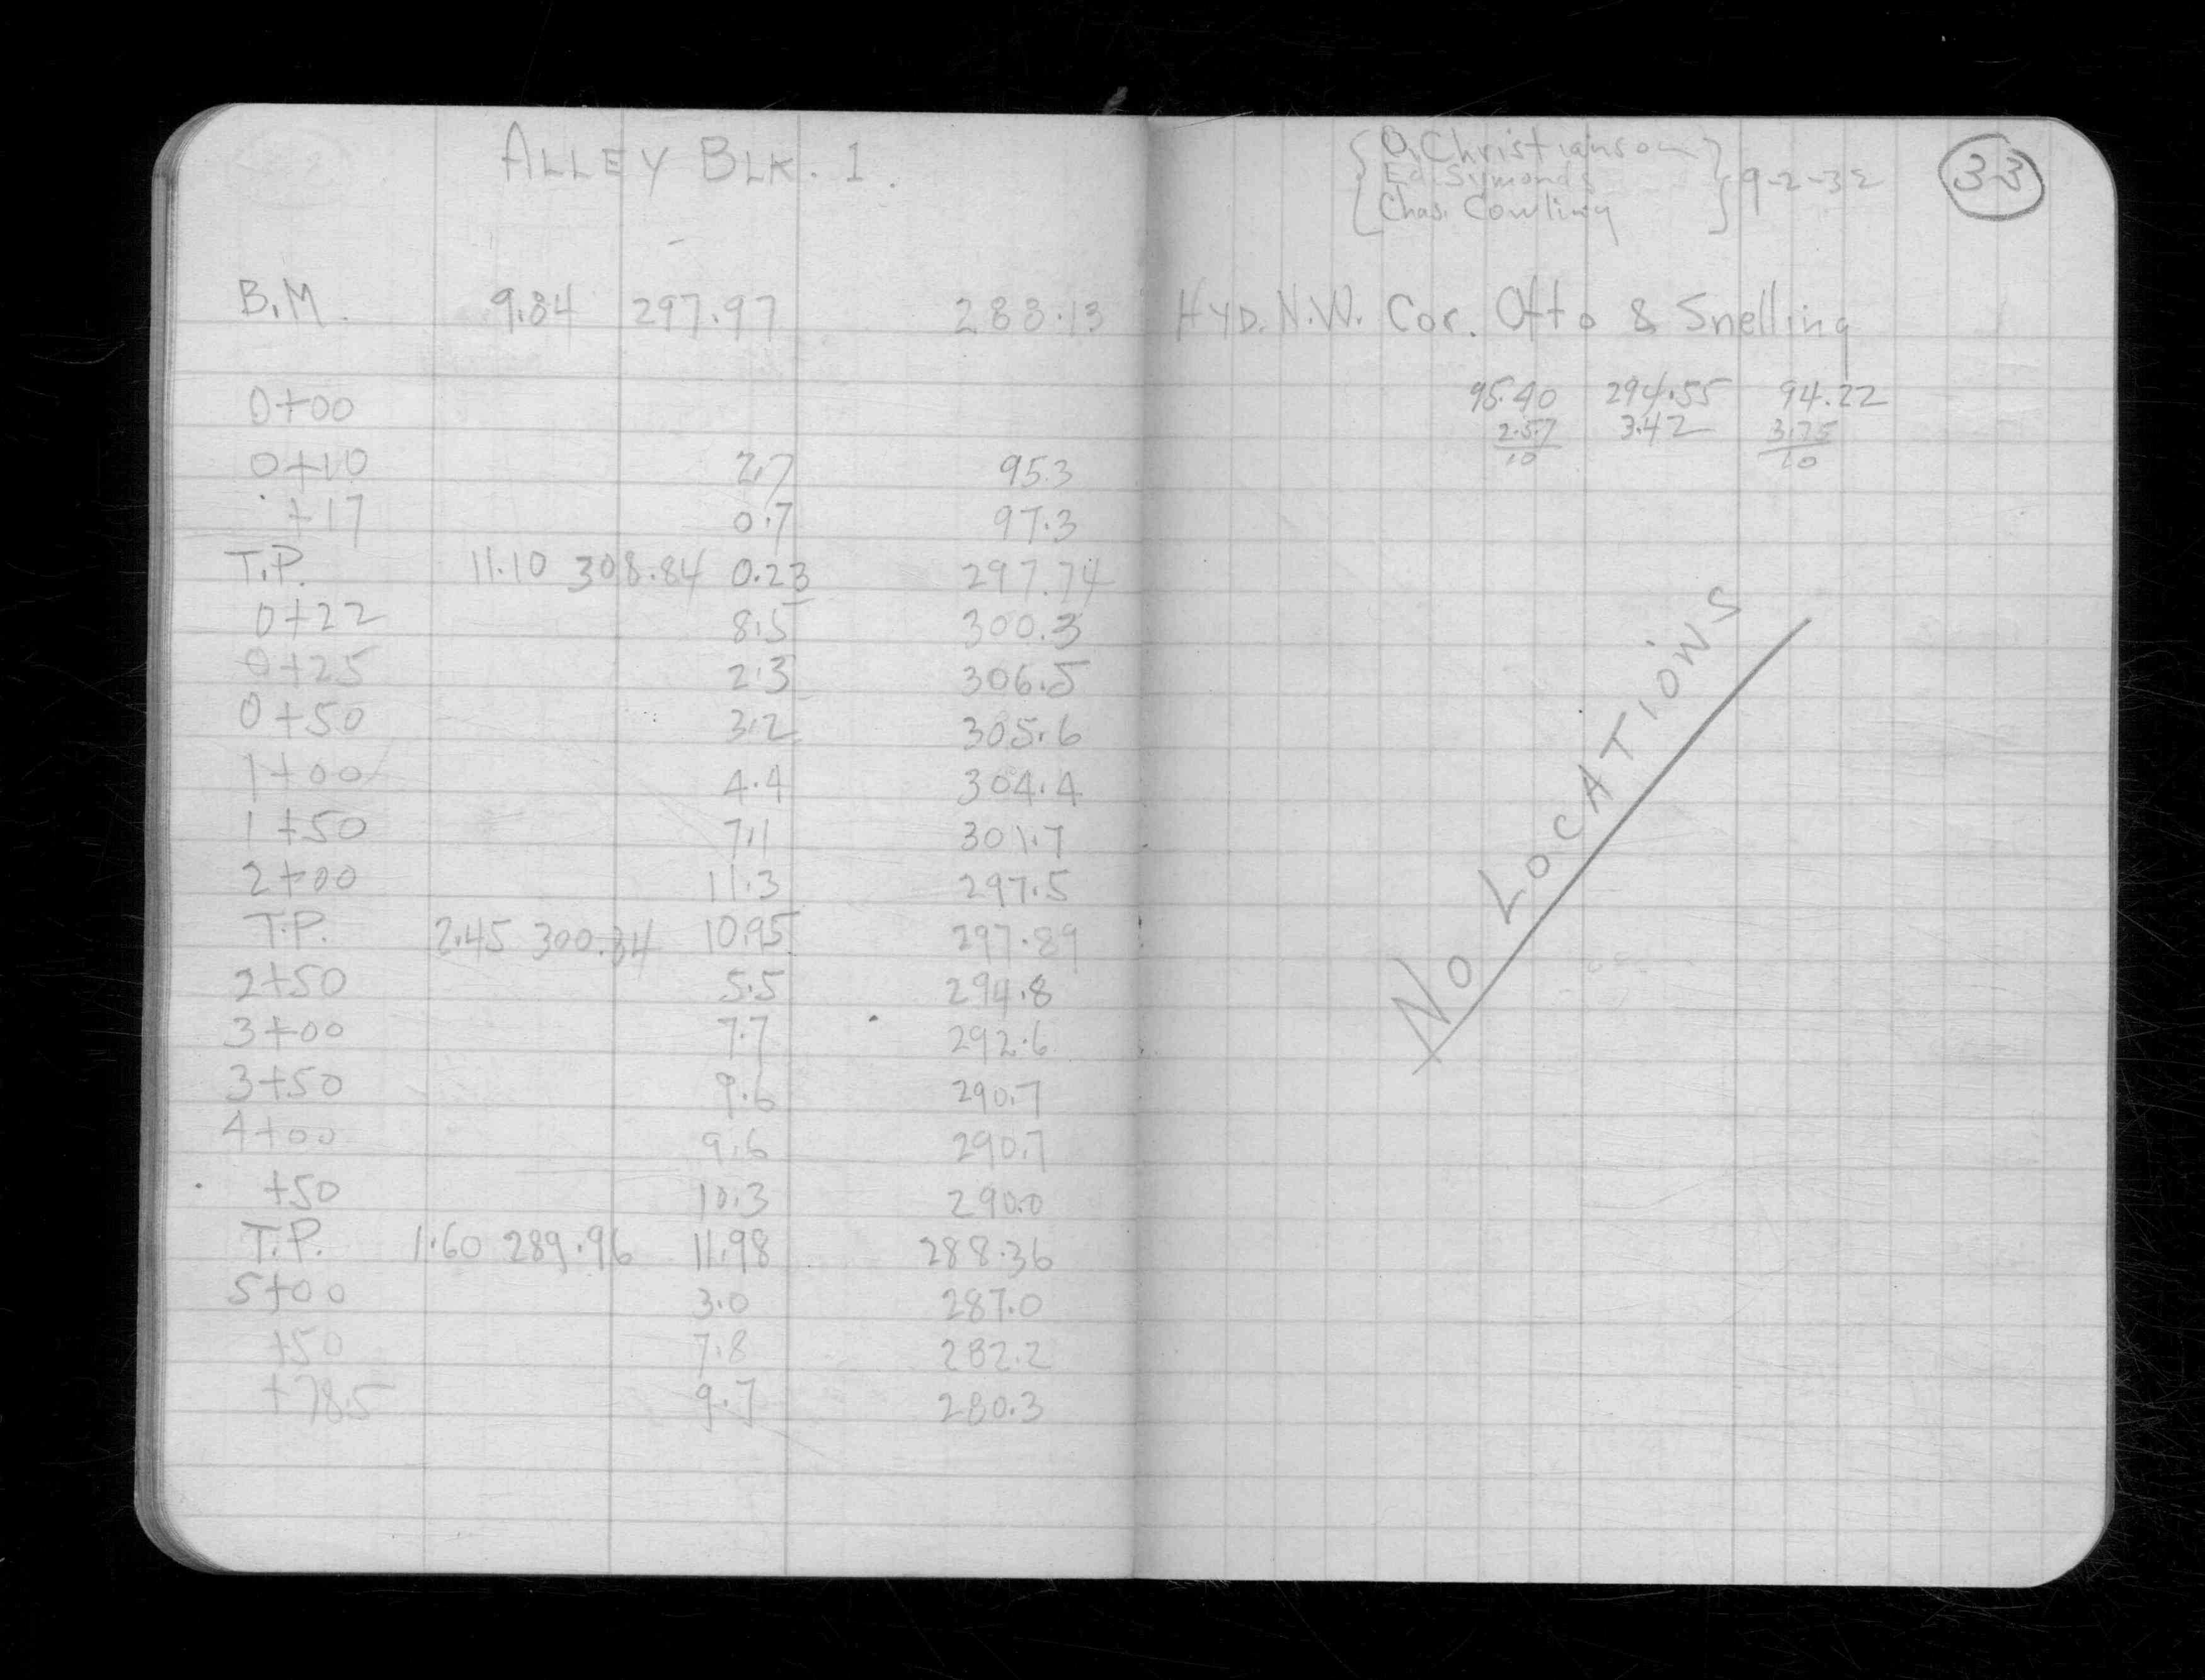 ALLEY BLK. 1.
O. Christianson
Ed. Symonds
Chas. Cowling
9-2-32
33
B.M. 9.84 297.97 288.13 HYD. N.W. Cor. Otto & Snelling
0+00 95.40 294.55 94.22
2.57 3.42 3.75
10 10
0+10 2.7 95.3
+17 0.7 97.3
T.P. 11.10 308.84 0.23 297.74
0+22 8.5 300.3
0+25 2.3 306.5
0+50 3.2 305.6
1+00 4.4 304.4
1+50 7.1 301.7
2+00 11.3 297.5
T.P. 2.45 300.34 10.95 297.89
2+50 5.5 294.8
3+00 7.7 292.6
3+50 9.6 290.7
4+00 9.6 290.7
+50 10.3 290.0
T.P. 1.60 289.96 11.98 288.36
5+00 3.0 287.0
+50 7.8 282.2
+78.5 9.7 280.3
NO LOCATIONS